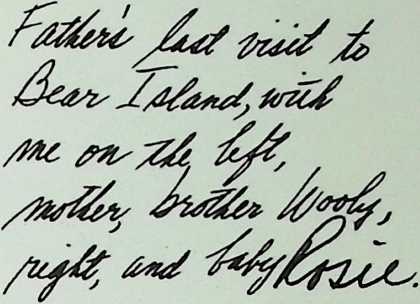 Father's last visit to
Bear Island, with
me on the left,
mother, brother Wooly,
right, and baby Rosie.